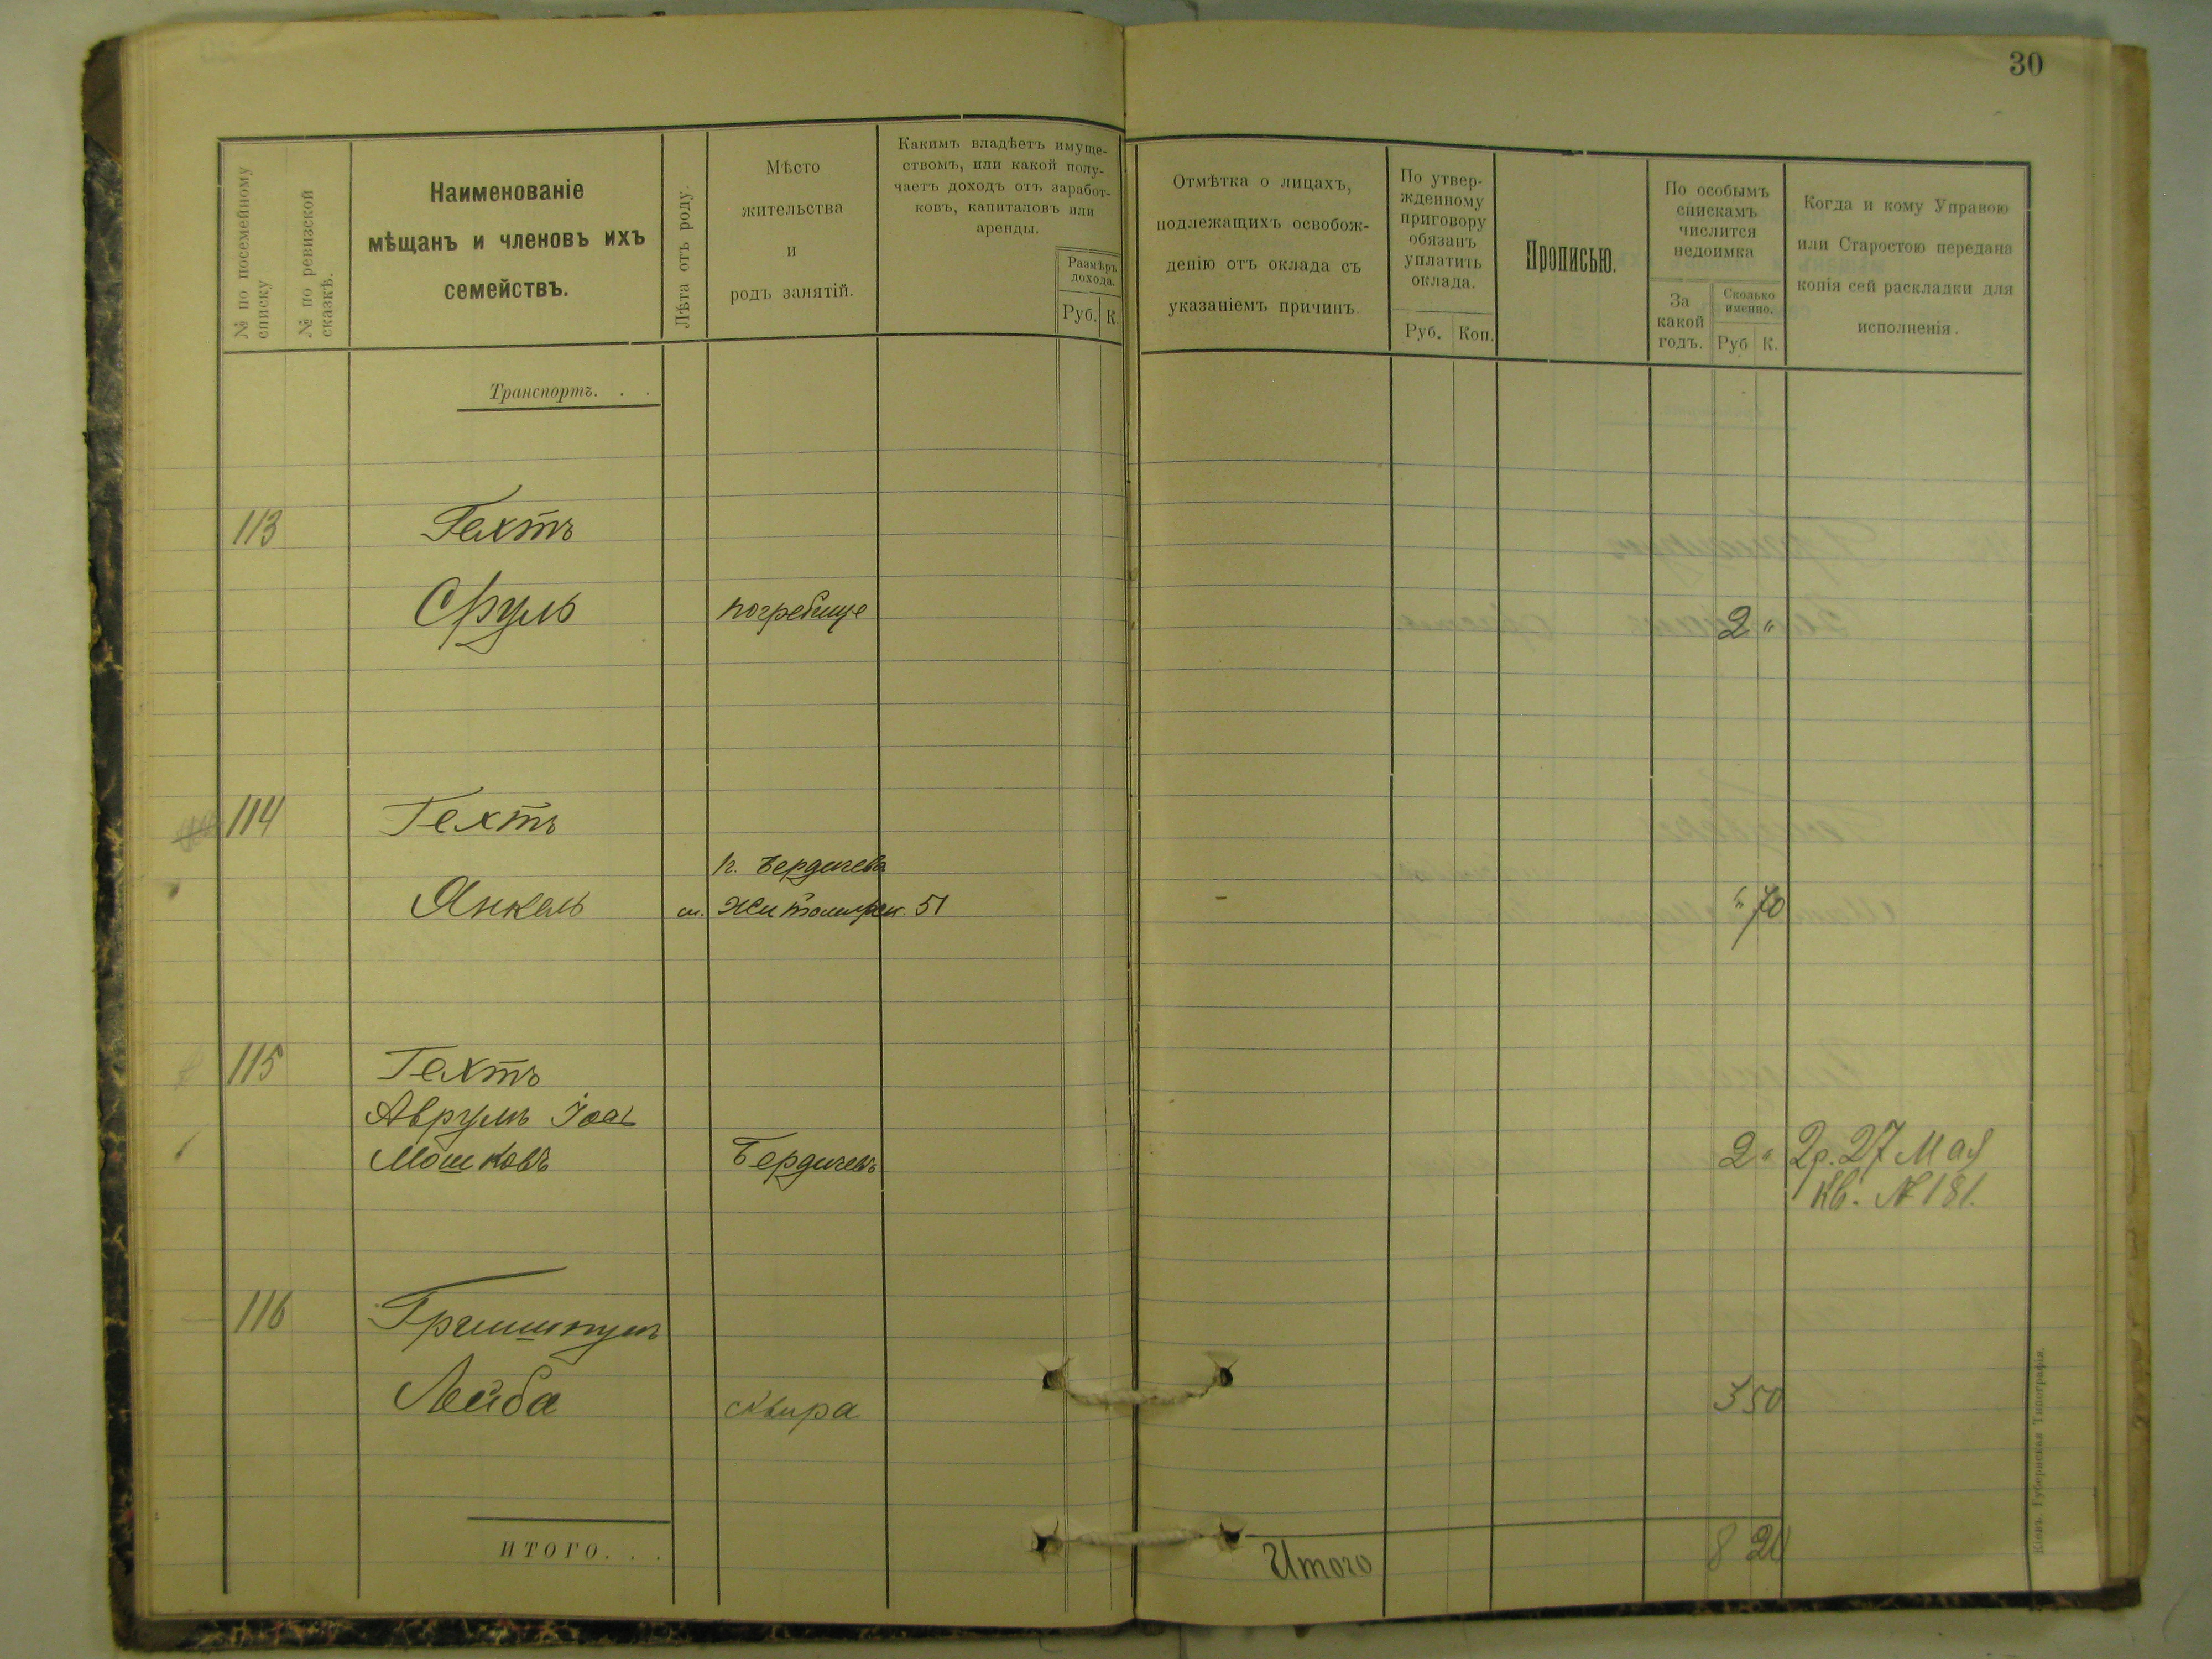 30
№ по посемейному списку
№ по ревизской сказкѣ.
Наименованіе
мѣщанъ и членовъ ихъ
семействъ.
Лѣта отъ роду.
Мѣсто
жительства
и
родъ занятій.
Какимъ владѣетъ имуще-
ствомъ, или какой полу-
чаетъ доходъ отъ заработ-
ковъ, капиталовъ или
аренды.
Размѣръ
дохода.
Руб. К.
Отмѣтка о лицахъ,
подлежащихъ освобож-
денію отъ оклада съ
указаніемъ причинъ.
По утвер-
жденному
приговору
обязанъ
уплатить
оклада.
Руб. Коп.
Прописью.
По особымъ
спискамъ
числится
недоимка
За
какой
годъ.
Сколько
именно.
Руб К.
Когда и кому Управою
или Старостою передана
копія сей раскладки для
исполненія.
Транспортъ. . .
113 Гехтъ
Сруль погребище 2 "
114 Гехтъ
г. Бердичевъ
Янкель Житомирск. 51 " 70
115 Гехтъ
Аврумъ Іось
Мошковъ Бердичевъ 2 " 2р. 27 Мая
Кв. № 181.
116 Гришпунъ
Лейба Сквира 3 50
ИТОГО. . .
Итого 8 20
Кіевъ. Губернская Типографія.